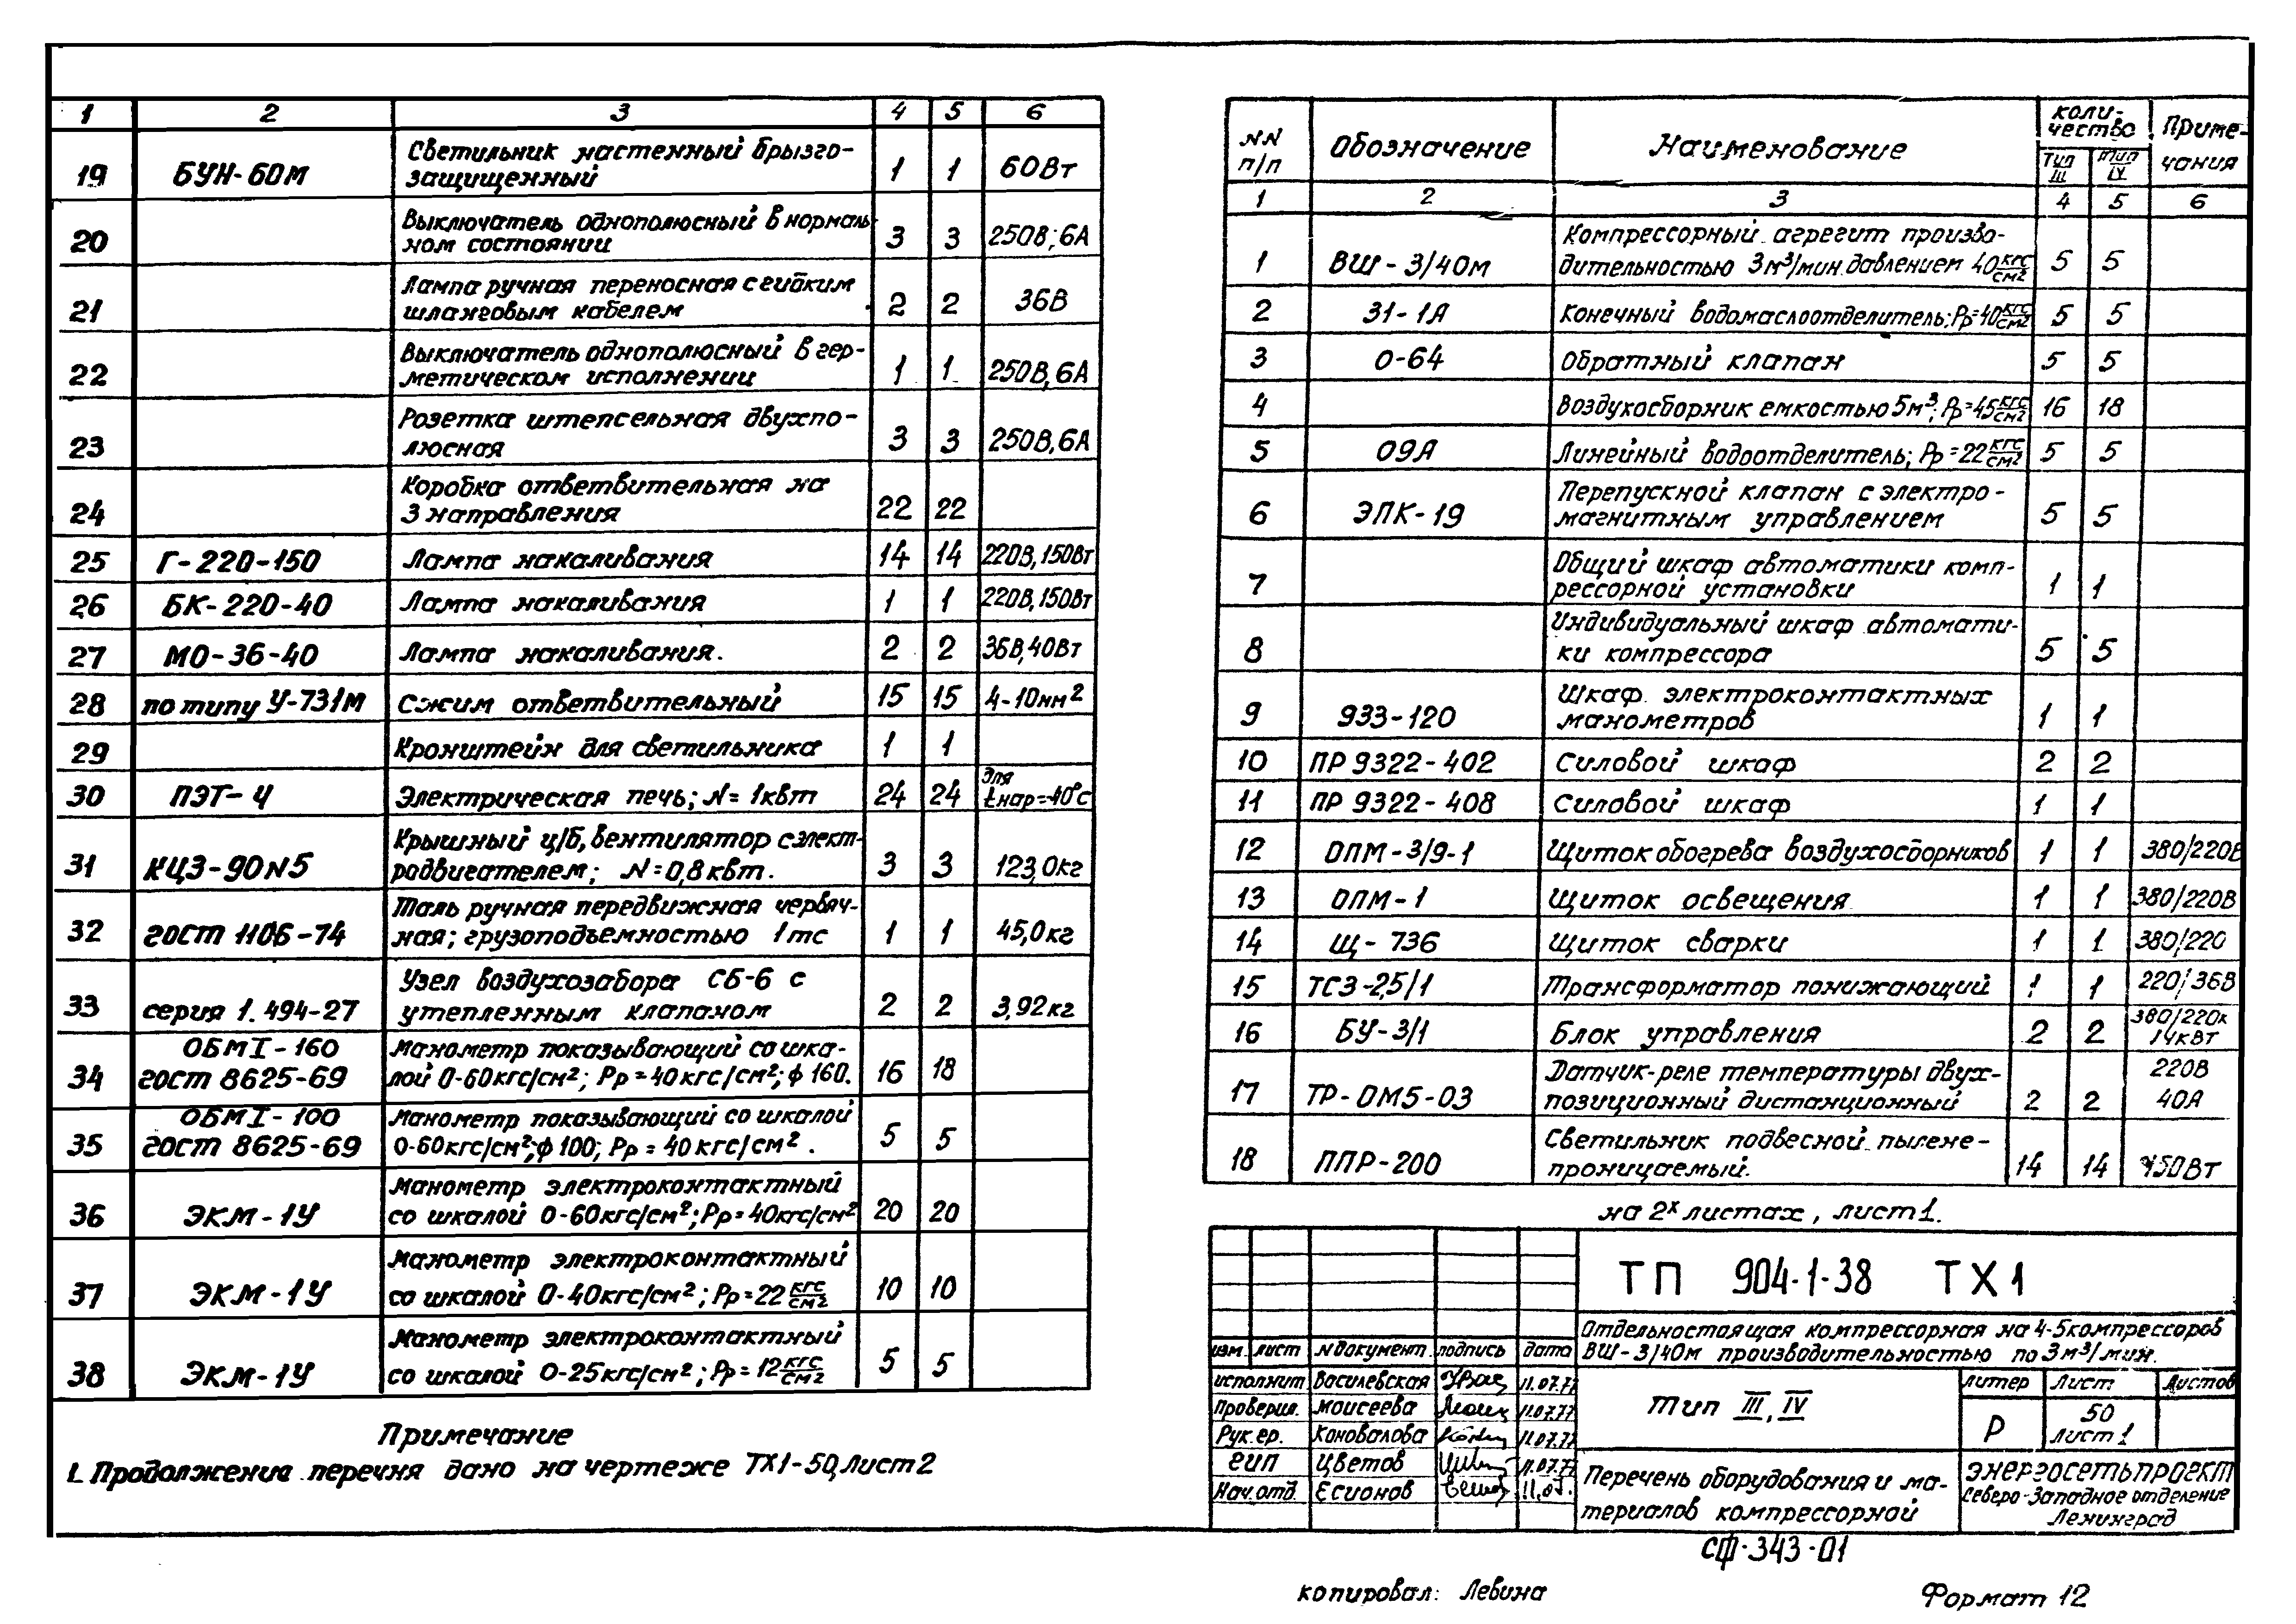 1 2 3 4 5 6
19 БУН-60М Светильник настенный брызго-
защищенный 1 1 60Вт
20 Выключатель однополюсный в нормаль-
ном состоянии 3 3 250В; 6А
21 Лампа ручная переносная с гибким
шланговым кабелем 2 2 36В
22 Выключатель однополюсный в гер-
метическом исполнении 1 1 250В, 6А
23 Розетка штепсельная двухпо-
люсная 3 3 250В, 6А
24 Коробка ответвительная на
3 направления 22 22
25 Г-220-150 Лампа накаливания 14 14 220В, 150Вт
26 БК-220-40 Лампа накаливания 1 1 220В, 150Вт
27 МО-36-40 Лампа накаливания. 2 2 36В, 40Вт
28 по типу У-731М Сжим ответвительный 15 15 4-10мм²
29 Кронштейн для светильника 1 1
30 ПЭТ-4 Электрическая печь; N= 1квт 24 24 Для
tнар=-40°С
31 КЦ3-90N5 Крышный ц/б, вентилятор с элект-
родвигателем; N=0,8квт. 3 3 123,0кг
32 гост 1106-74 Таль ручная передвижная червяч-
ная; грузоподъемностью 1тс 1 1 45,0кг
33 серия 1.494-27 Узел воздухозабора СБ-6 с
утепленным клапаном 2 2 3,92кг
34 ОБМ1-160
гост 8625-69 Манометр показывающий со шка-
лой 0-60кгс/см²; Рр=40кгс/см²; ф 160. 16 18
35 ОБМ1-100
гост 8625-69 Манометр показывающий со шкалой
0-60кгс/см²; ф 100; Рр = 40 кгс/см². 5 5
36 ЭКМ-1У Манометр электроконтактный
со шкалой 0-60кгс/см²; Рр=40кгс/см² 20 20
37 ЭКМ-1У Манометр электроконтактный
со шкалой 0-40кгс/см²; Рр=22 кгс/см² 10 10
38 ЭКМ-1У Манометр электроконтактный
со шкалой 0-25кгс/см²; Рр=12 кгс/см² 5 5
Примечание
1. Продолжение перечня дано на чертеже ТХ1-50, лист 2
NN
п/п Обозначение Наименование Коли-
чество Приме-
чания
Тип
III Тип
IV
1 2 3 4 5 6
1 ВШ-3/40м Компрессорный агрегит произво-
дительностью 3м³/мин. давлением 40 кгс/см² 5 5
2 31-1А Конечный водомаслоотделитель; Рр=40 кгс/см² 5 5
3 0-64 Обратный клапан 5 5
4 Воздухосборник емкостью 5м³; Рр=45 кгс/см² 16 18
5 09А Линейный водоотделитель; Рр=22 кгс/см² 5 5
6 ЭПК-19 Перепускной клапан с электро-
магнитным управлением 5 5
7 Общий шкаф автоматики комп-
рессорной установки 1 1
8 Индивидуальный шкаф автомати-
ки компрессора 5 5
9 933-120 Шкаф электроконтактных
манометров 1 1
10 ПР 9322-402 Силовой шкаф 2 2
11 ПР 9322-408 Силовой шкаф 1 1
12 ОПМ-3/9-1 Щиток обогрева воздухосборников 1 1 380/220В
13 ОПМ-1 Щиток освещения 1 1 380/220В
14 Щ-736 Щиток сварки 1 1 380/220
15 ТСЗ-2,5/1 Трансформатор понижающий 1 1 220/36В
16 БУ-3/1 Блок управления 2 2 380/220к
14квт
17 ТР-ОМ5-03 Датчик-реле температуры двух-
позиционный дистанционный 2 2 220В
40А
18 ППР-200 Светильник подвесной пылене-
проницаемый. 14 14 150Вт
на 2х листах, лист 1.
ТП 904-1-38 ТХ1
Отдельностоящая компрессорная на 4-5 компрессоров
ВШ-3/40м производительностью по 3м³/мин.
изм. лист N документ. подпись дата
исполнит. Василевская 11.07.77
Проверил. Моисеева 11.07.77
Рук.гр. Коновалова 11.07.77
ГИП Цветов 11.07.77
Нач.отд. Есионов 11.07.
Тип III, IV
Литер Лист Листов
Р 50
лист 1
Перечень оборудования и ма-
териалов компрессорной
энергосетьпроект
Северо-Западное отделение
Ленинград
СФ-343-01
копировал: Левина
Формат 12